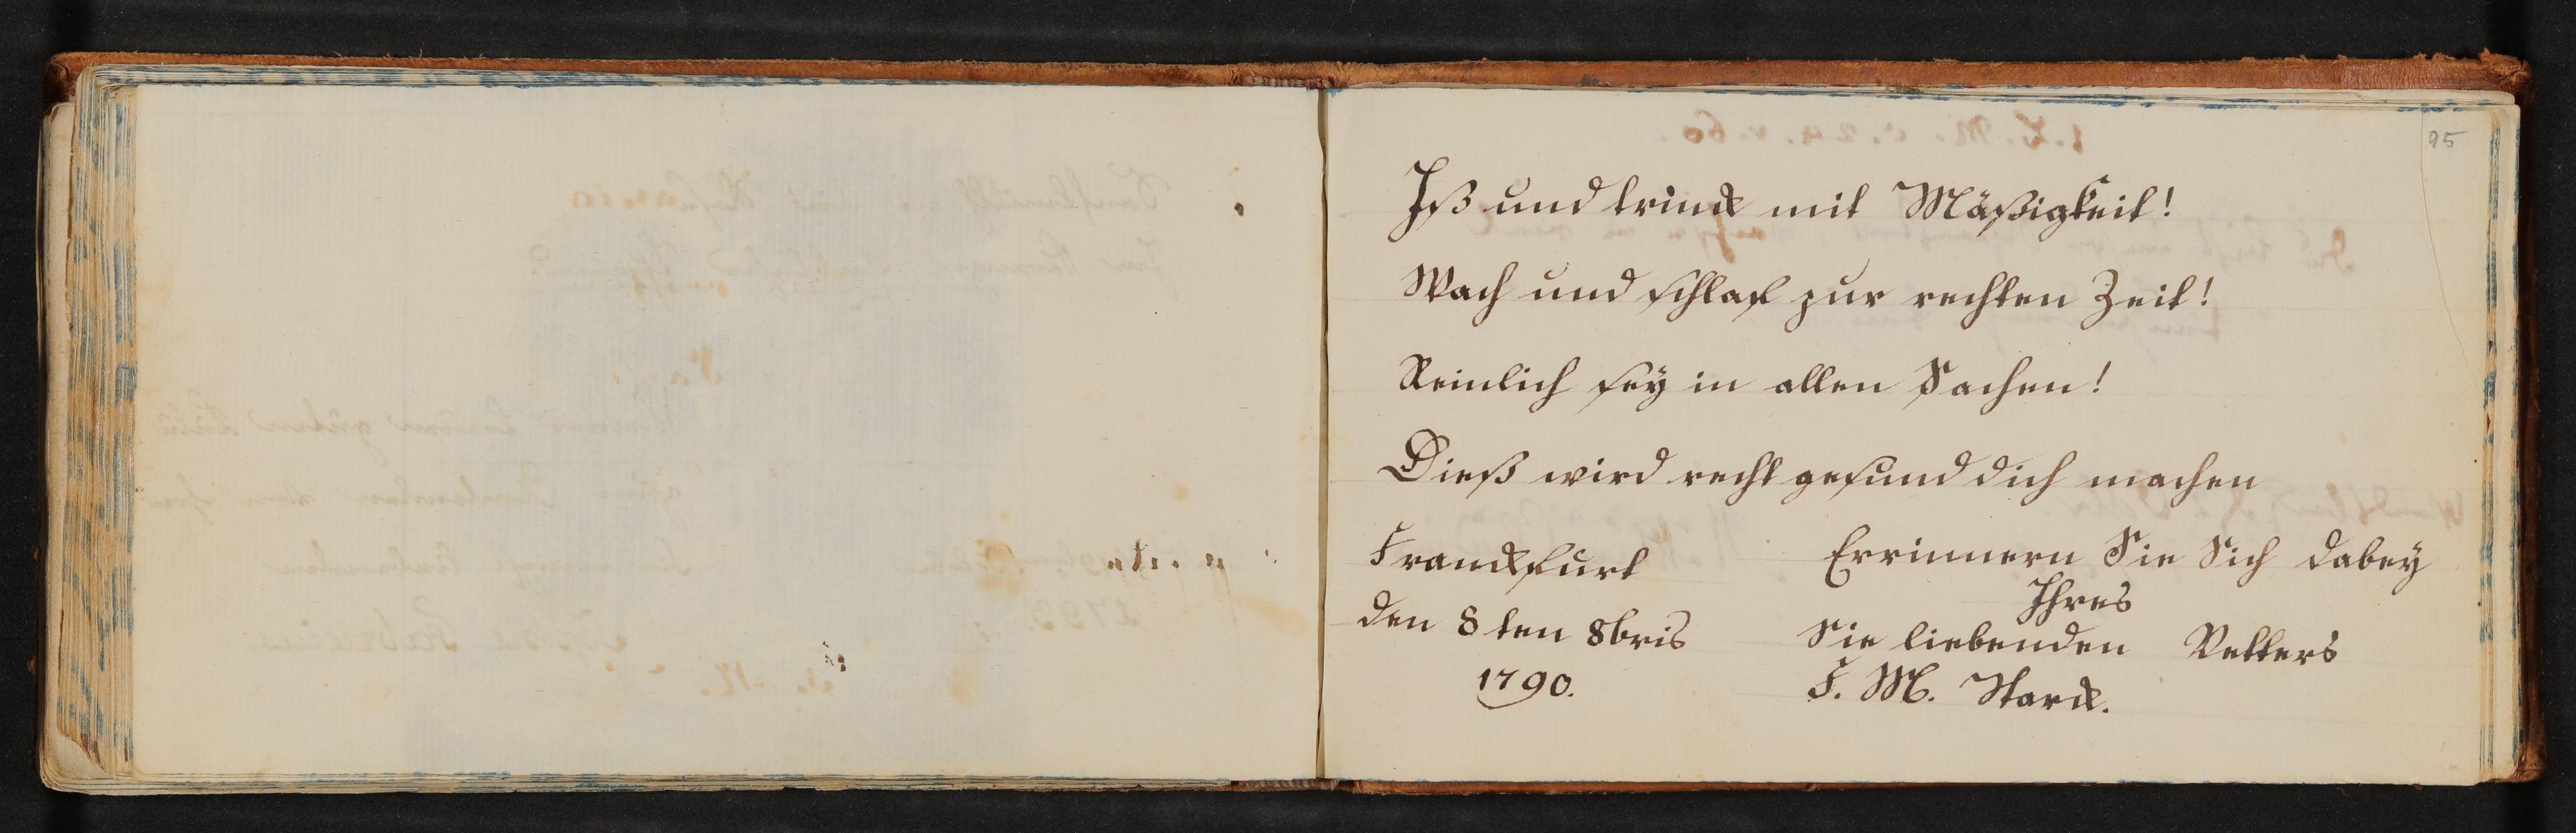 95
Iß und trinck mit Mäßigkeit!
Wach und schlaf zur rechten Zeit!
Reinlich sey in allen Sachen!
Dieß wird recht gesund dich machen
Franckfurt
den 8ten 8bris
1790.
Errinnern Sie Sich dabey
Ihres
Sie liebenden Vetters
F. M. Starck.